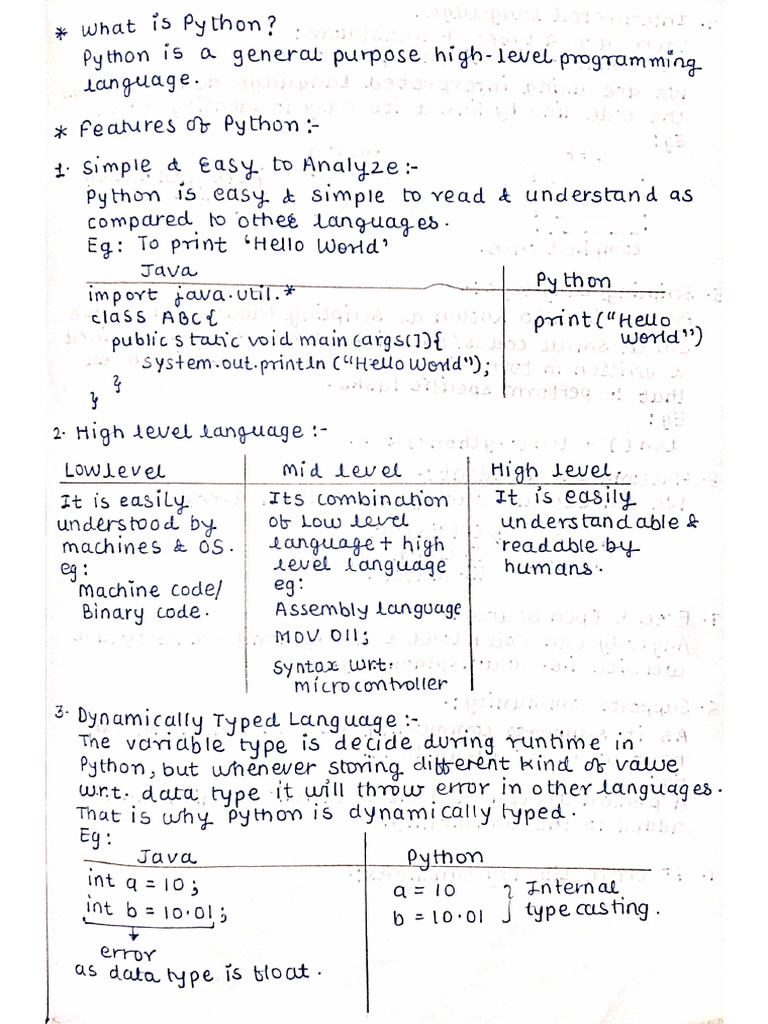 * What is Python?
Python is a general purpose high-level programming
language.
* Features of Python :-
1. Simple & Easy to Analyze :-
Python is easy & simple to read & understand as
compared to other languages.
Eg: To print 'Hello World'
Java
import java.util.*
class ABC{
public static void main (args[]){
system.out.println ("Hello World");
}
}
Python
print("Hello
World")
2. High level language :-
Low level
It is easily
understood by
machines & OS.
eg:
Machine code/
Binary code.
Mid level
Its combination
of low level
language + high
level language
eg:
Assembly language
MOV 011;
syntax wrt.
microcontroller
High level.
It is easily
understandable &
readable by
humans.
3. Dynamically Typed Language :-
The variable type is decide during runtime in
Python, but whenever storing different kind of value
w.r.t. data type it will throw error in other languages.
That is why Python is dynamically typed.
Eg:
Java
int a = 10;
int b = 10.01;
error
as data type is float.
Python
a = 10
b = 10.01
Internal
type casting.